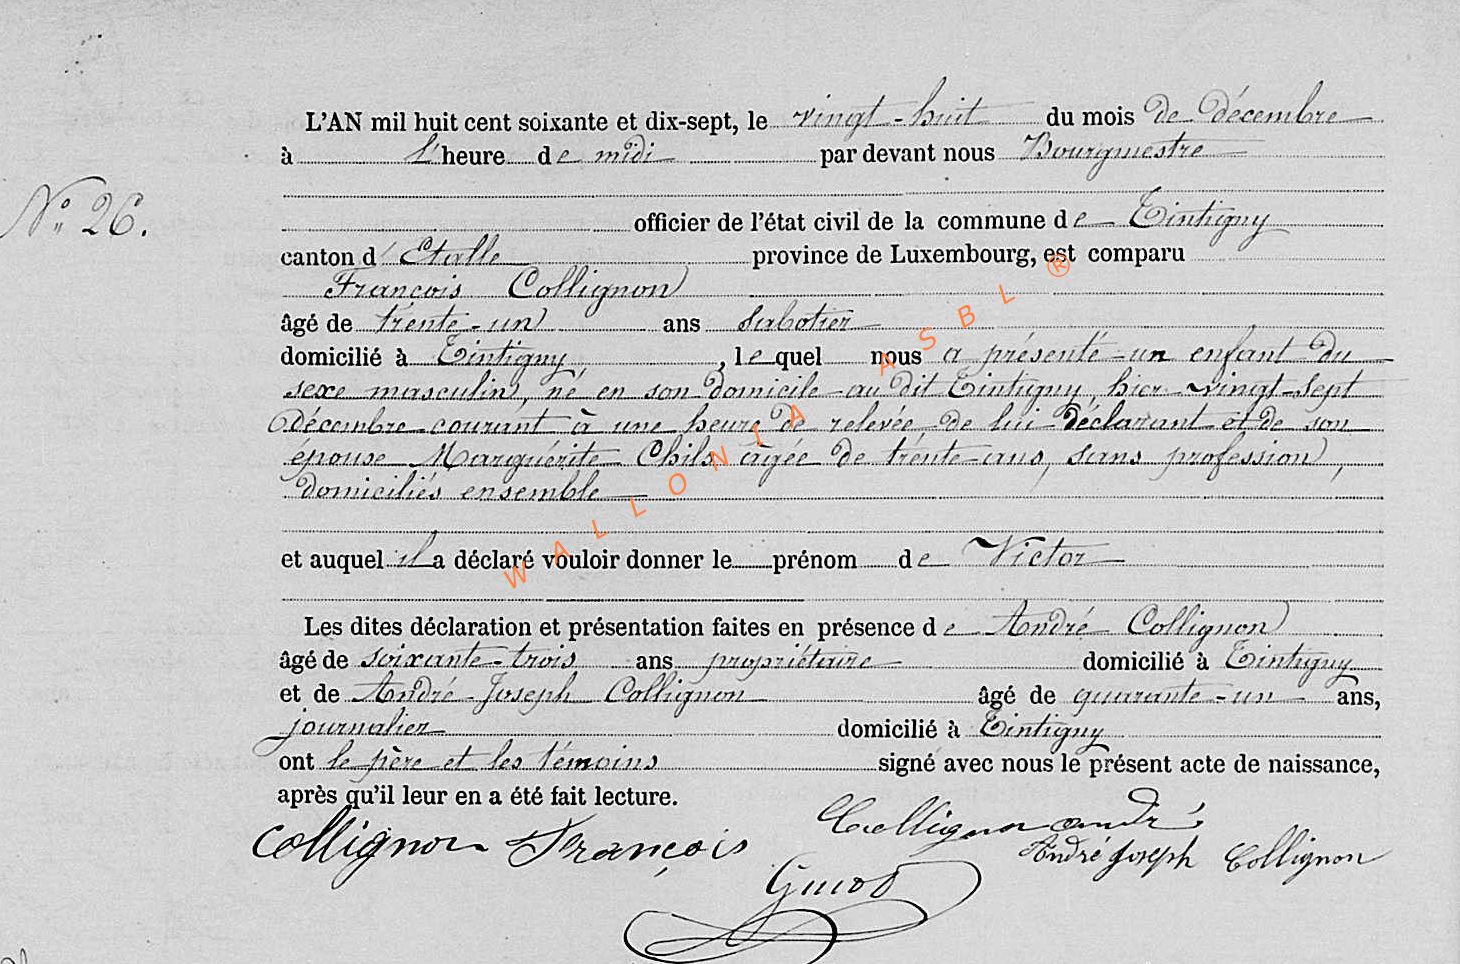 L'AN mil huit cent soixante et dix-sept, le vingt-huit du mois de décembre
à l'heure de midi par devant nous Bourgmestre
officier de l'état civil de la commune de Tintigny
N° 26.
canton d'Etalle province de Luxembourg, est comparu
François Collignon
âgé de trente-un ans sabotier
domicilié à Tintigny, lequel nous a présenté un enfant du
sexe masculin, né en son domicile au dit Tintigny, hier vingt-sept
décembre courant à une heure de relevée de lui déclarant et de son
épouse Marguérite Chils âgée de trente ans, sans profession,
domiciliés ensemble
et auquel il a déclaré vouloir donner le prénom de Victor
Les dites déclaration et présentation faites en présence de André Collignon
âgé de soixante-trois ans propriétaire domicilié à Tintigny
et de André-Joseph Collignon âgé de quarante-un ans,
journalier domicilié à Tintigny
ont le père et les témoins signé avec nous le présent acte de naissance,
après qu'il leur en a été fait lecture.
Collignon François
Collignon andré
André joseph Collignon
WALLONIA ASBL ®